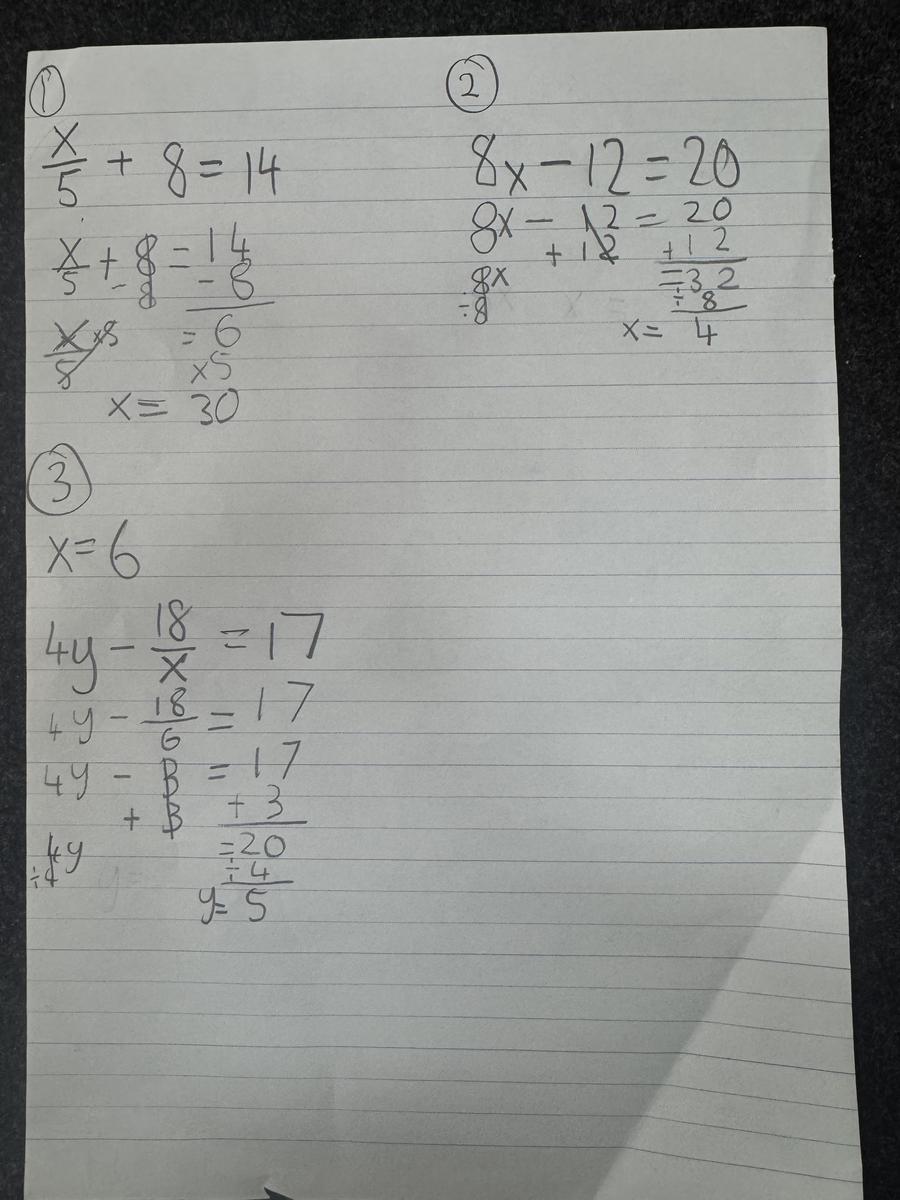 ①
x/5 + 8 = 14
x/5 + 8 = 14
- 8 - 8
x/5 x5 = 6
x5
x = 30
②
8x - 12 = 20
8x - 12 = 20
+ 12 + 12
8x = 32
÷8 ÷ 8
x = 4
③
x = 6
4y - 18/x = 17
4y - 18/6 = 17
4y - 3 = 17
+ 3 + 3
4y = 20
÷4 ÷ 4
y = 5